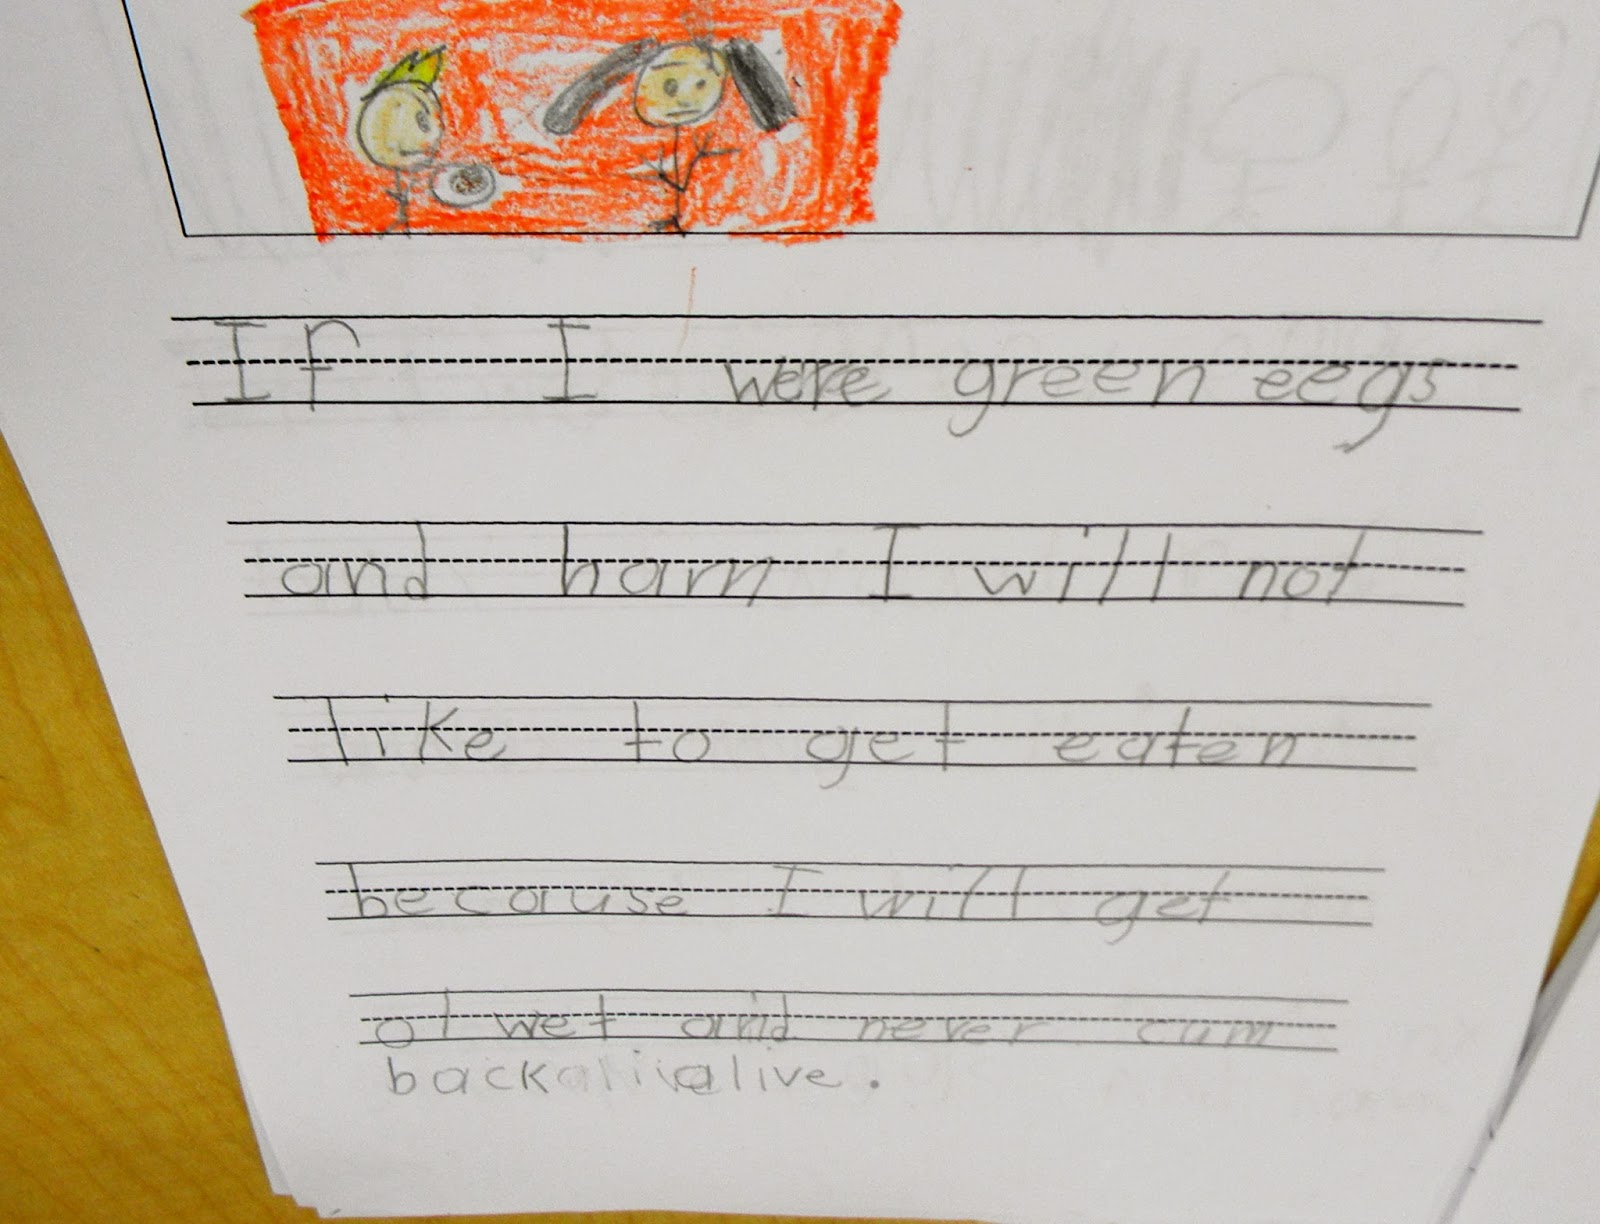 If I were green eegs
and ham I will not
like to get eaten
because I will get
ol wet and never cum
back alive.